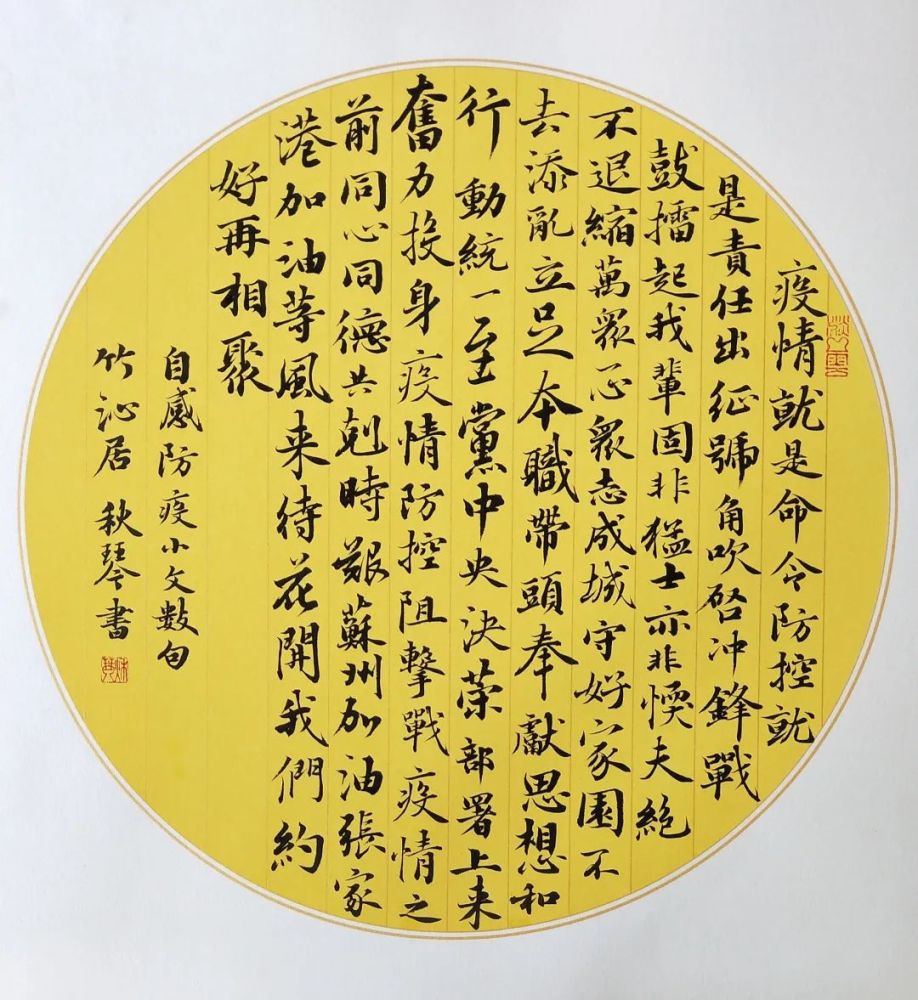 疫情就是命令防控就
是責任出征號角吹啓冲鋒戰
鼓擂起我輩固非猛士亦非愞夫絕
不退縮萬衆一心衆志成城守好家園不
去添亂立足本職帶頭奉獻思想和
行動統一至黨中央決策部署上来
奮力投身疫情防控阻擊戰疫情之
前同心同德共剋時艱蘇州加油張家
港加油等風来待花開我們約
好再相聚
自感防疫小文數句
竹沁居 秋琴書